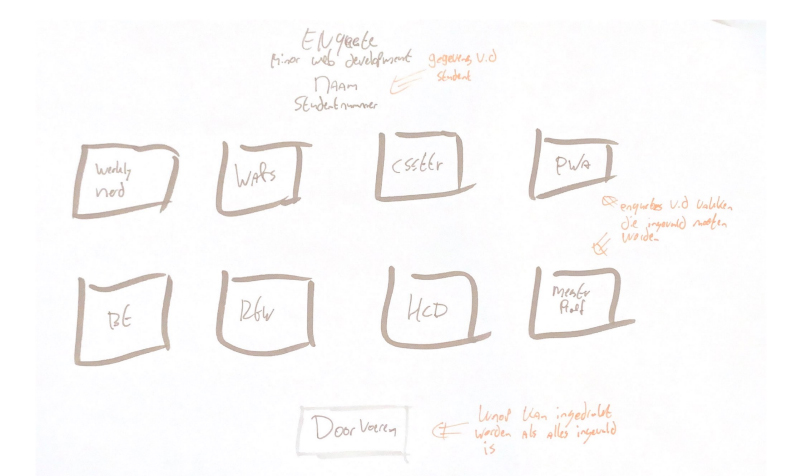 ENquete
Minor web development
Naam
Studentnummer
gegevens v.d
student
weekly
nerd
WAFS
CSSttr
PWA
enquetes v.d vakken
die ingevuld moeten
worden
BE
RTW
HCD
Meester
Proef
Doorvoeren
knop kan ingedrukt
worden als alles ingevuld
is